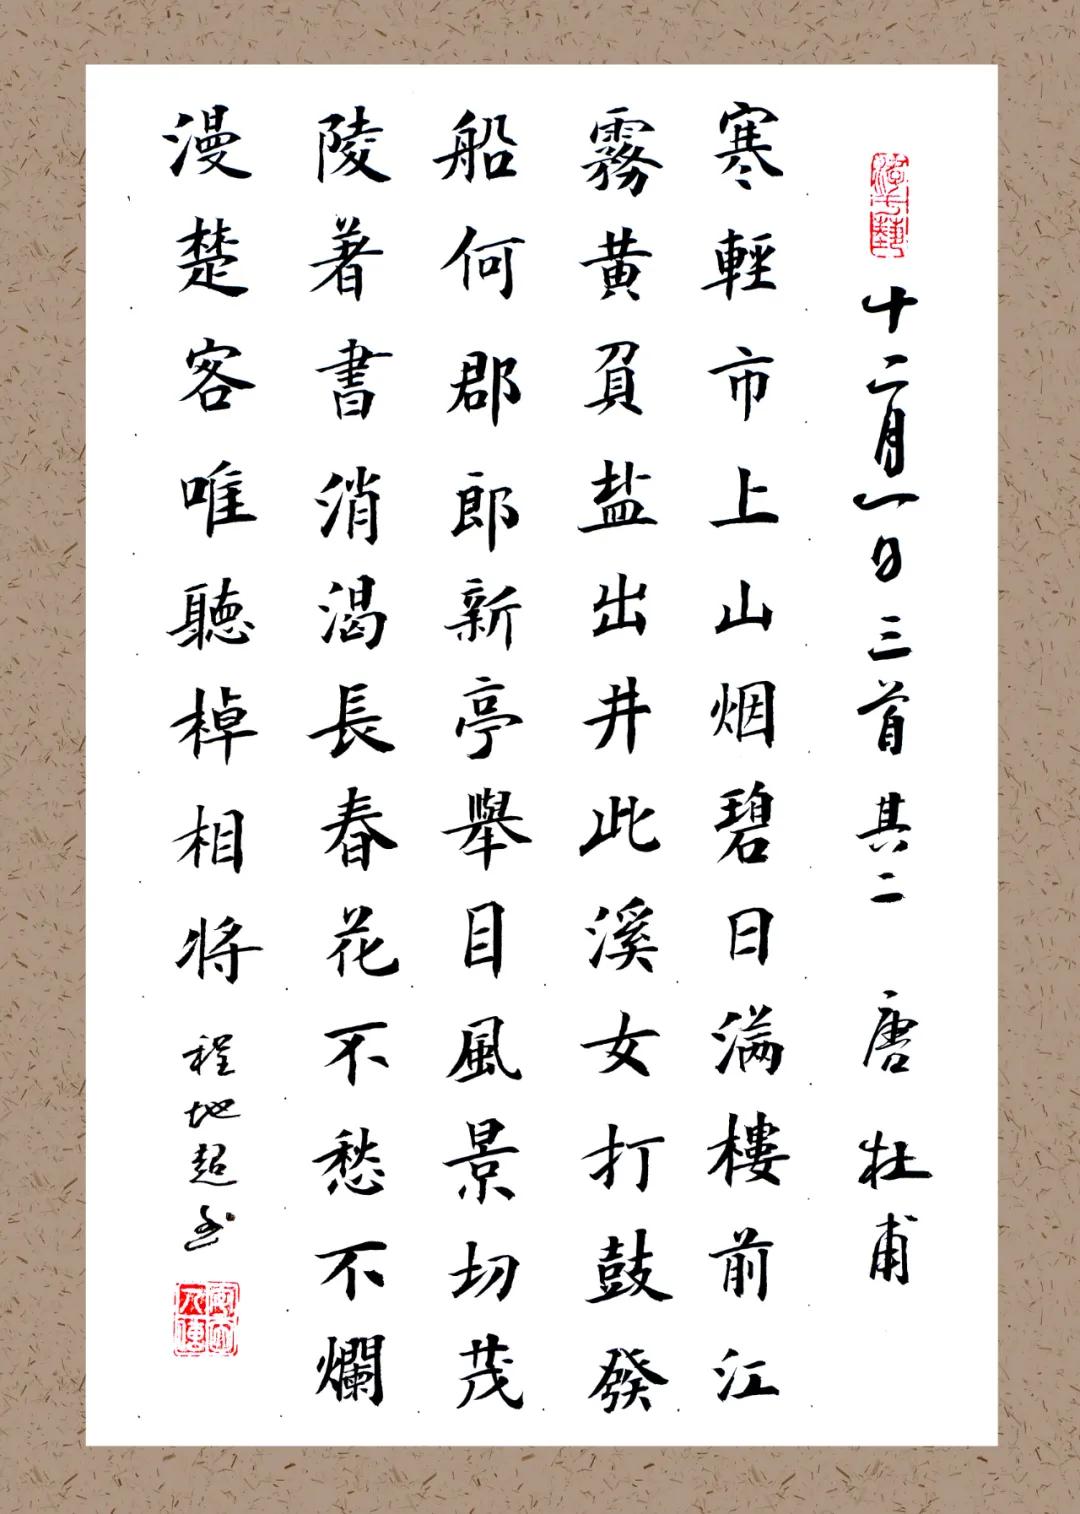 十二月一日三首 其二 唐 杜甫
寒輕市上山烟碧日滿樓前江
霧黃負盐出井此溪女打鼓發
船何郡郎新亭舉目風景切茂
陵著書消渴長春花不愁不爛
漫楚客唯聽棹相將
程地超书